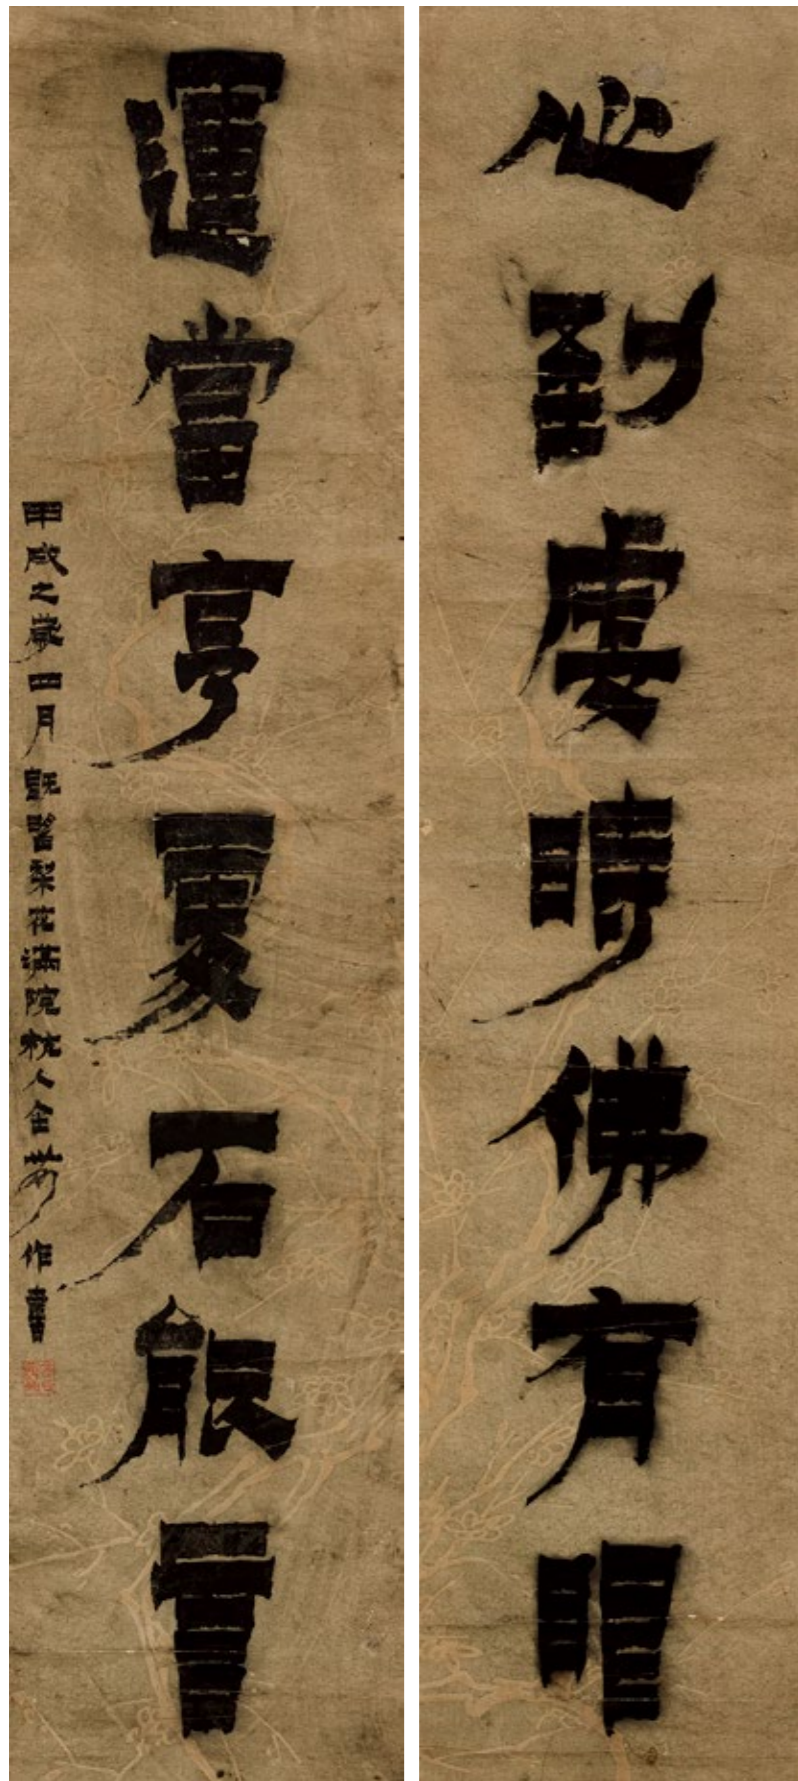 心到虔時佛有眼
運當亨處石能言
甲戌之歲四月既望梨花滿院杭人金農作書